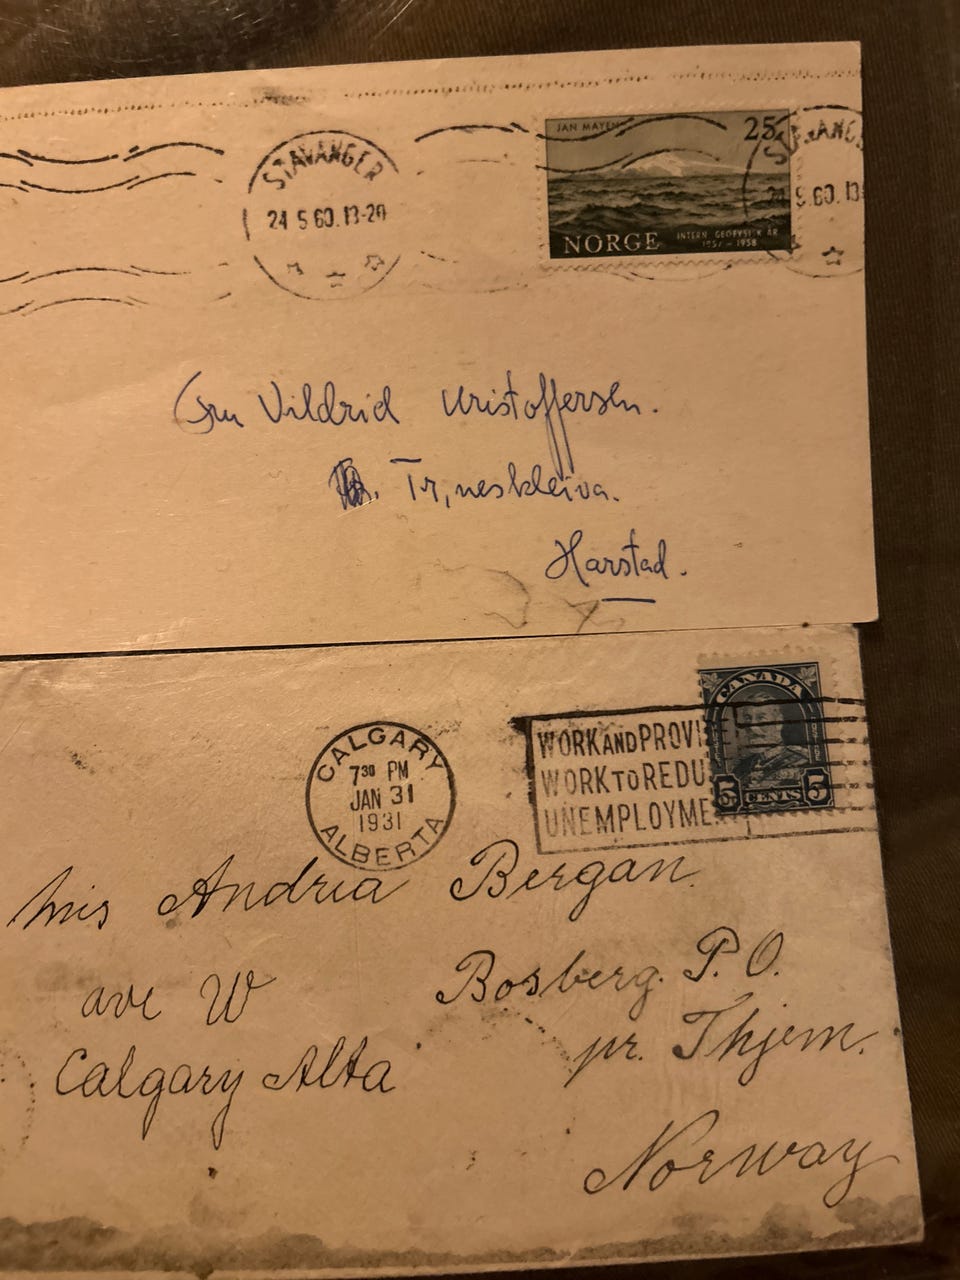 STAVANGER
24 5 60. 13-20
JAN MAYEN
25
NORGE
INTERN. GEOFYSISK ÅR
1957 - 1958
STAVANG
5.60. 13
Vildrid Kristoffersen.
neskleiva.
Harstad.
CALGARY
7 30 PM
JAN 31
1931
ALBERTA
WORK AND PROVI
WORK TO REDU
UNEMPLOYME
CANADA
5 CENTS 5
Andria Bergan
ave W
Bosberg. P.O.
Calgary Alta
pr. Thjem.
Norway